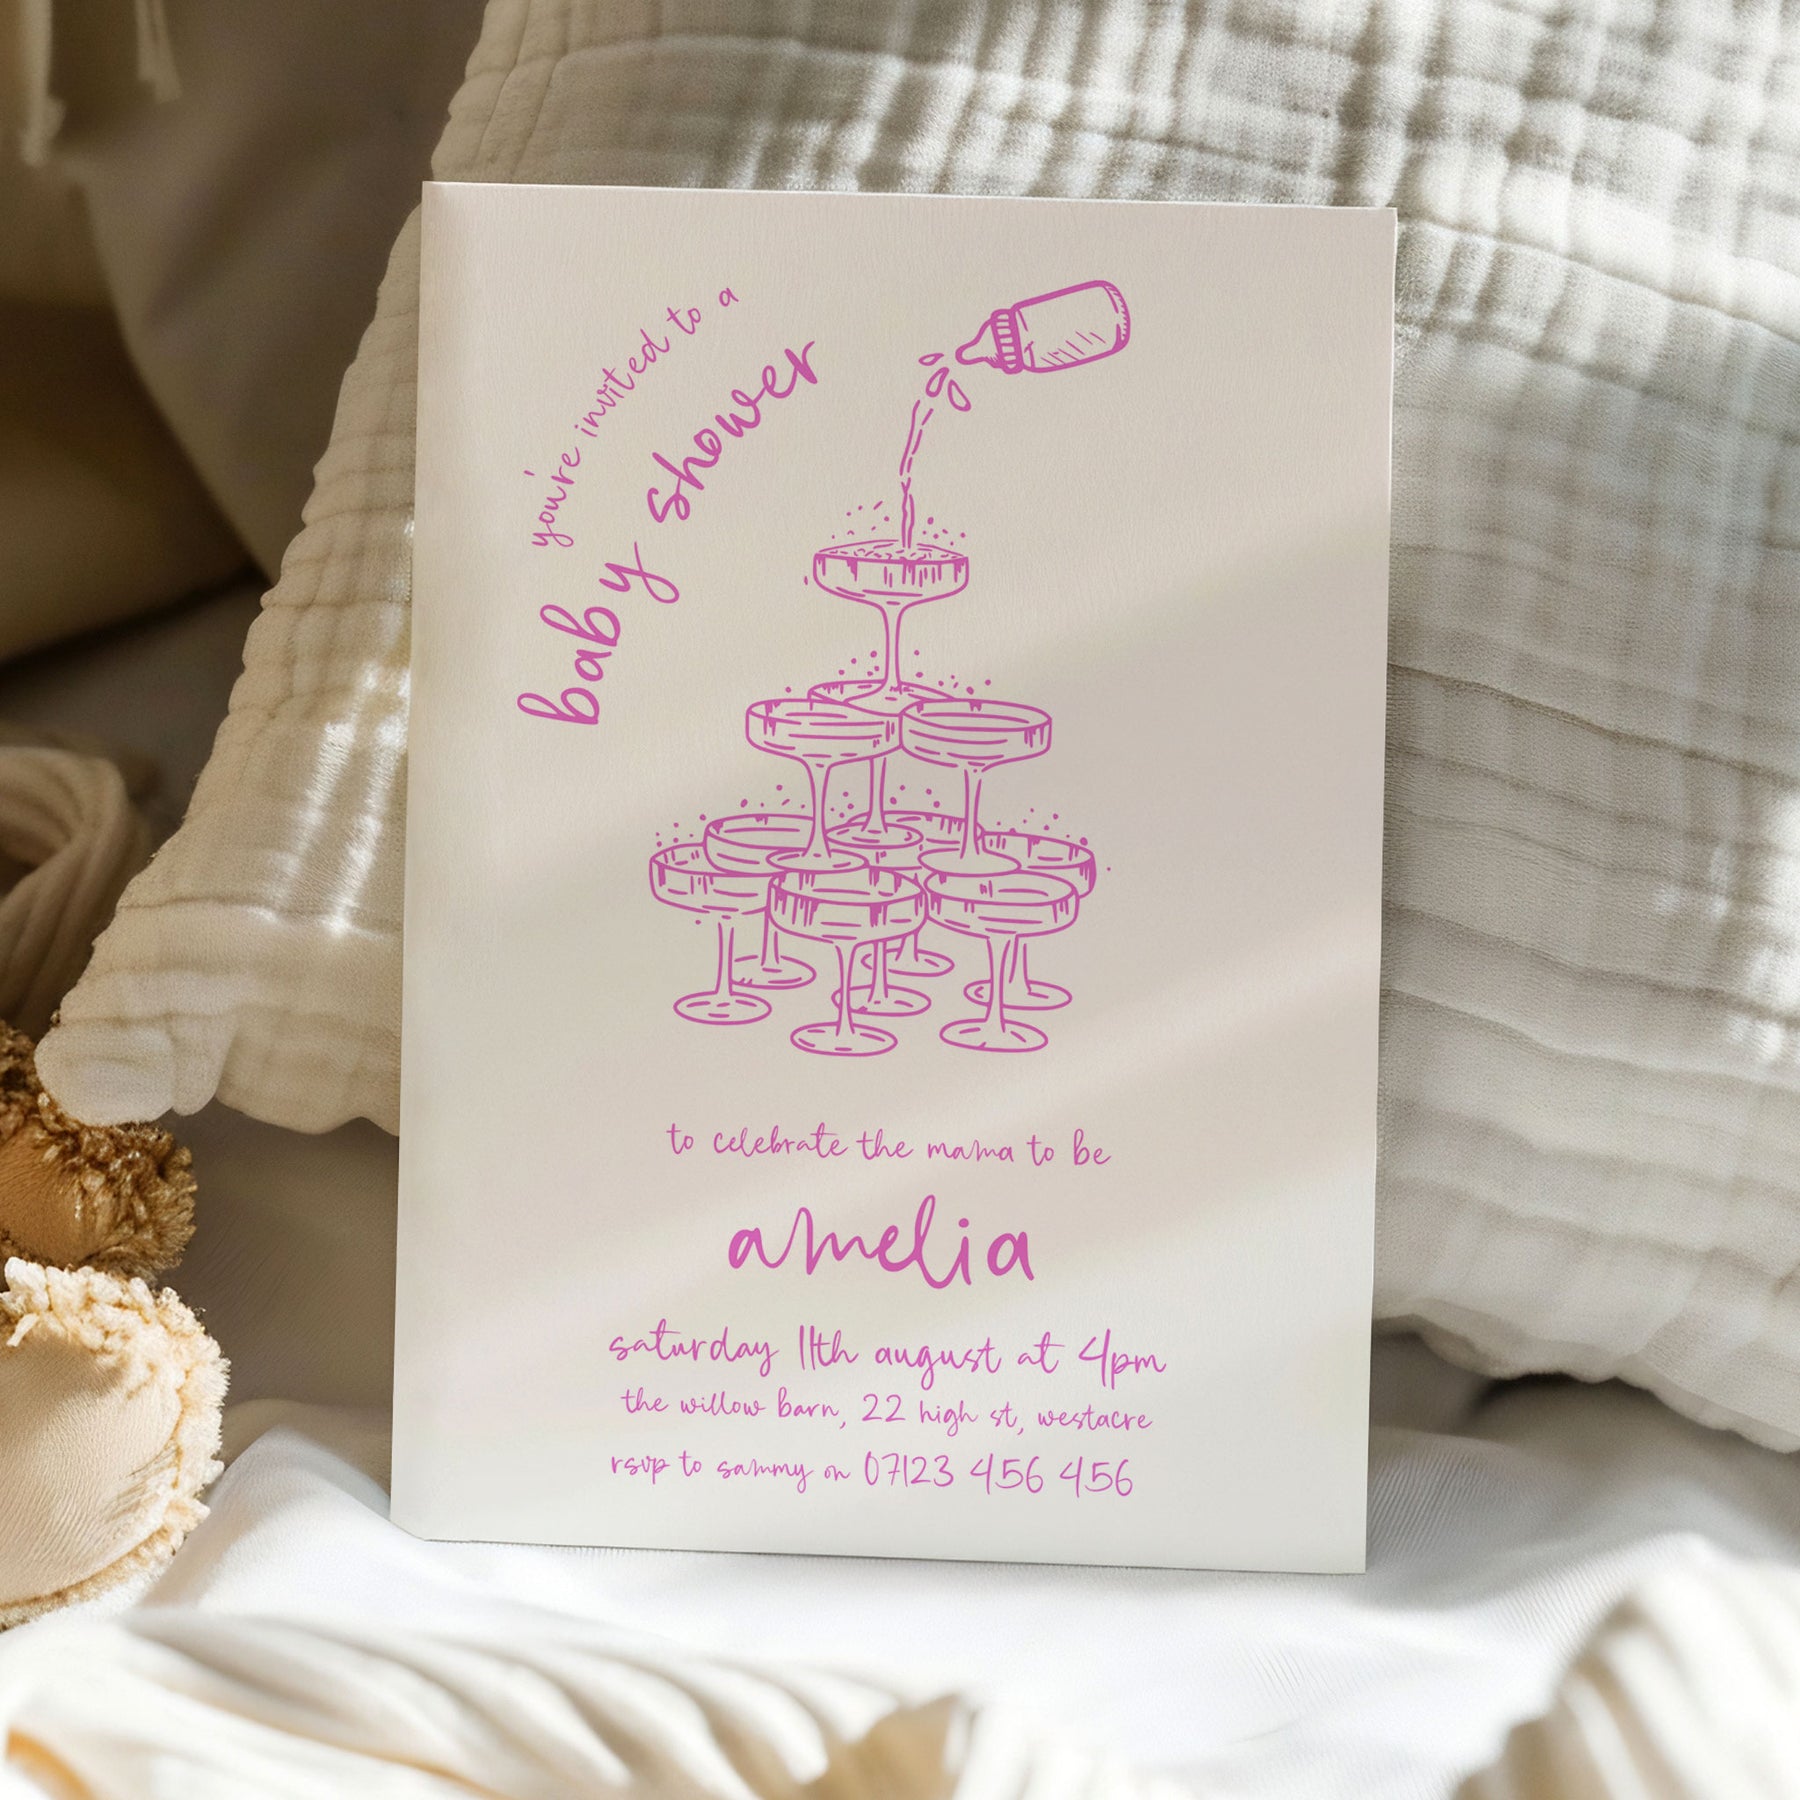 you're invited to a
baby shower
to celebrate the mama to be
amelia
saturday 11th august at 4pm
the willow barn, 22 high st, westacre
rsvp to sammy on 07123 456 456